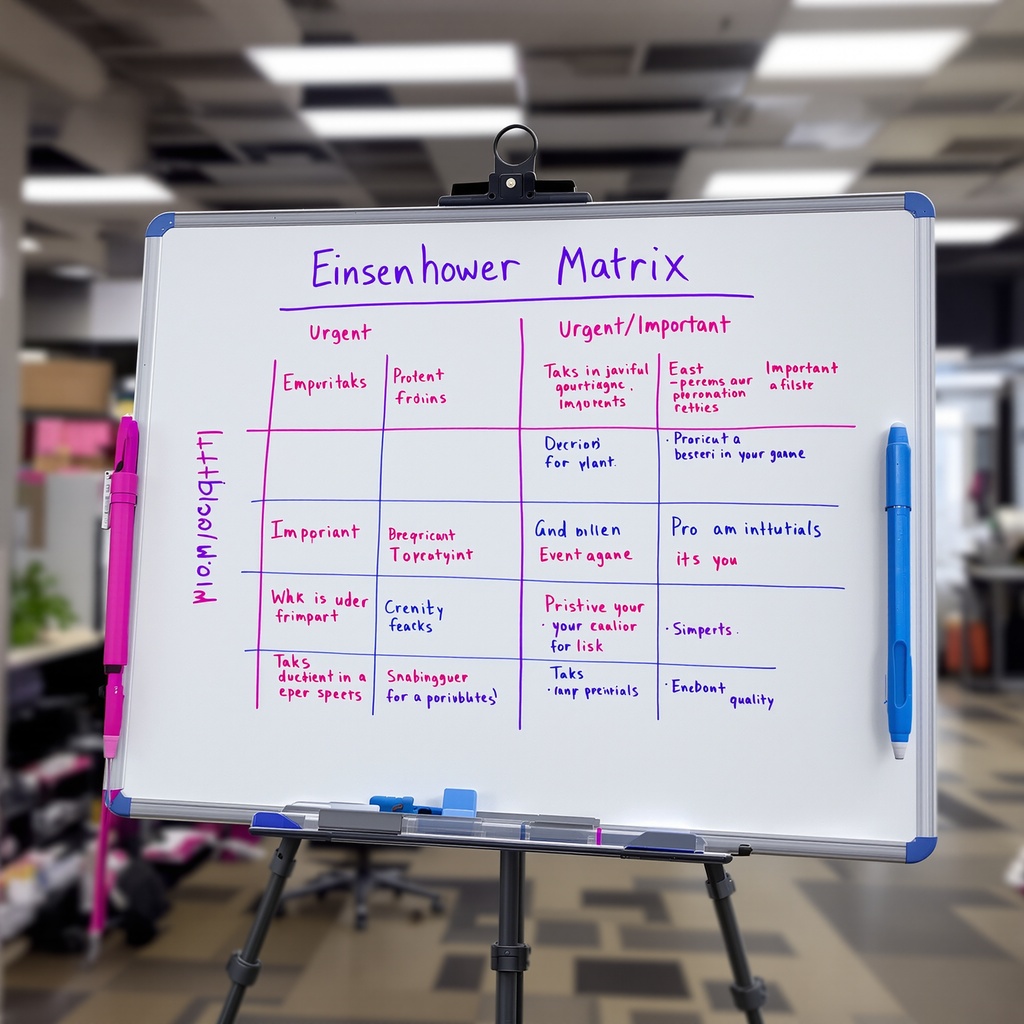 Einsenhower Matrix
Urgent
Urgent/Important
Empvritaks
Protent
frdiins
Taks in javiful
gourtisgne.
Imporents
East
-perems aur
pronation
retties
Important
afilste
Decriori
for plant.
· Proricut a
besteri in your game
Imppriant
Breqricant
Torcatyint
Gnd billen
Event agane
Pro am inttutials
its you
Whk is uder
frimpart
Crenity
feacks
Pristive your
· your caalior
for lisk
· Simperts.
Taks
ductient in a
eper speets
Snabingguer
for a porivblutes'
Taks
· ianp preintials
· Encbont
quality